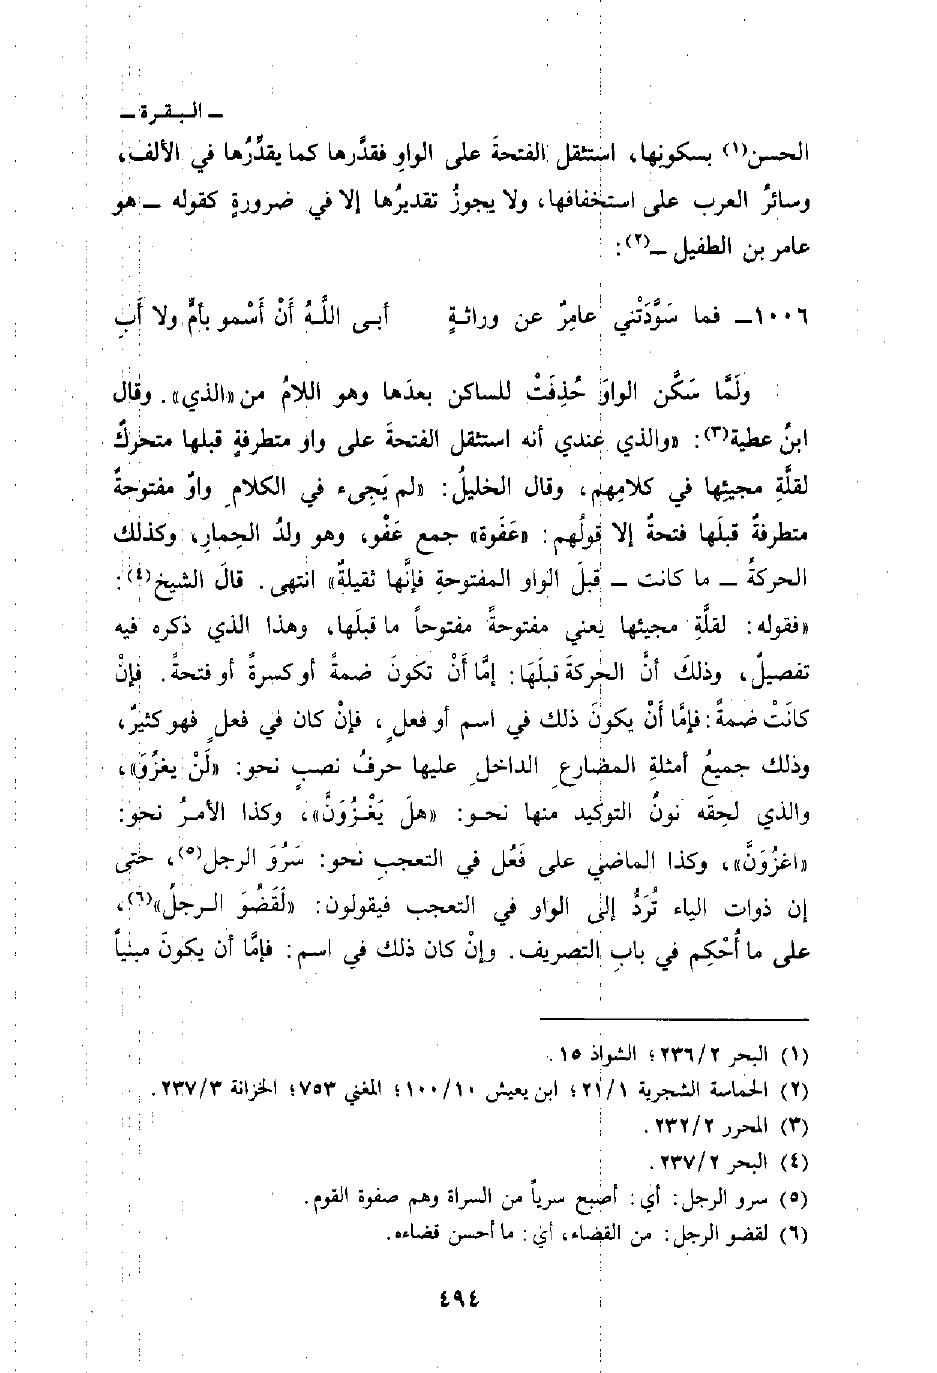 ـ البقرة ـ
الحسن(١) بسكونِها، استثقل الفتحةَ على الواوِ فقدَّرها كما يقدِّرُها في الألف،
وسائرُ العرب على استخفافها، ولا يجوزُ تقديرُها إلا في ضرورةٍ كقوله ـ هو
عامر بن الطفيل ـ(٢):
١٠٠٦ـ فما سَوَّدَتْني عامِرٌ عن وراثةٍ أبى اللَّهُ أنْ أَسْمو بأمٍّ ولا أَبِ
ولَمَّا سَكَّن الواوَ حُذِفَتْ للساكن بعدَها وهو اللامُ من «الذي». وقال
ابنُ عطية(٣): «والذي عندي أنه استثقل الفتحةَ على واو متطرفةٍ قبلها متحركٌ
لقلَّةِ مجيئِها في كلامِهم، وقال الخليلُ: «لم يَجِىء في الكلامِ واوٌ مفتوحةٌ
متطرفةٌ قبلَها فتحةٌ إلا قولُهم: «عَفَوة» جمع عَفْو، وهو ولدُ الحِمارِ، وكذلك
الحركةُ ـ ما كانت ـ قبلَ الواو المفتوحةِ فإنَّها ثقيلةٌ» انتهى. قالَ الشيخ(٤):
«فقوله: لقلَّةِ مجيئها يعني مفتوحةً مفتوحاً ما قبلَها، وهذا الذي ذكره فيه
تفصيلٌ، وذلكَ أنَّ الحركةَ قبلَها: إمَّا أَنْ تكونَ ضمةً أو كسرةً أو فتحةً. فإنْ
كانَتْ ضمةً: فإمَّا أَنْ يكونَ ذلك في اسم أو فعلٍ، فإنْ كان في فعلٍ فهو كثيرٌ،
وذلك جميعُ أمثلةِ المضارعِ الداخلِ عليها حرفُ نصبٍ نحو: «لَنْ يغزُوَ»،
والذي لحِقَه نونُ التوكيد منها نحو: «هل يَغْزُوَنَّ»، وكذا الأمرُ نحو:
«اغزُوَنَّ»، وكذا الماضي على فَعُل في التعجب نحو: سَرُوَ الرجل(٥)، حتى
إن ذوات الياء تُرَدُّ إلى الواو في التعجب فيقولون: «لَقَضُوَ الرجلُ»(٦)،
على ما أُحْكِم في بابِ التصريف. وإنْ كان ذلك في اسم: فإمَّا أن يكونَ مبنياً
(١) البحر ٢٣٦/٢؛ الشواذ ١٥.
(٢) الحماسة الشجرية ٢١/١؛ ابن يعيش ١٠٠/١٠؛ المغني ٧٥٣؛ الخزانة ٢٣٧/٣.
(٣) المحرر ٢٣٢/٢.
(٤) البحر ٢٣٧/٢.
(٥) سرو الرجل: أي: أصبح سرياً من السراة وهم صفوة القوم.
(٦) لقضو الرجل: من القضاء، أي: ما أحسن قضاءه.
٤٩٤